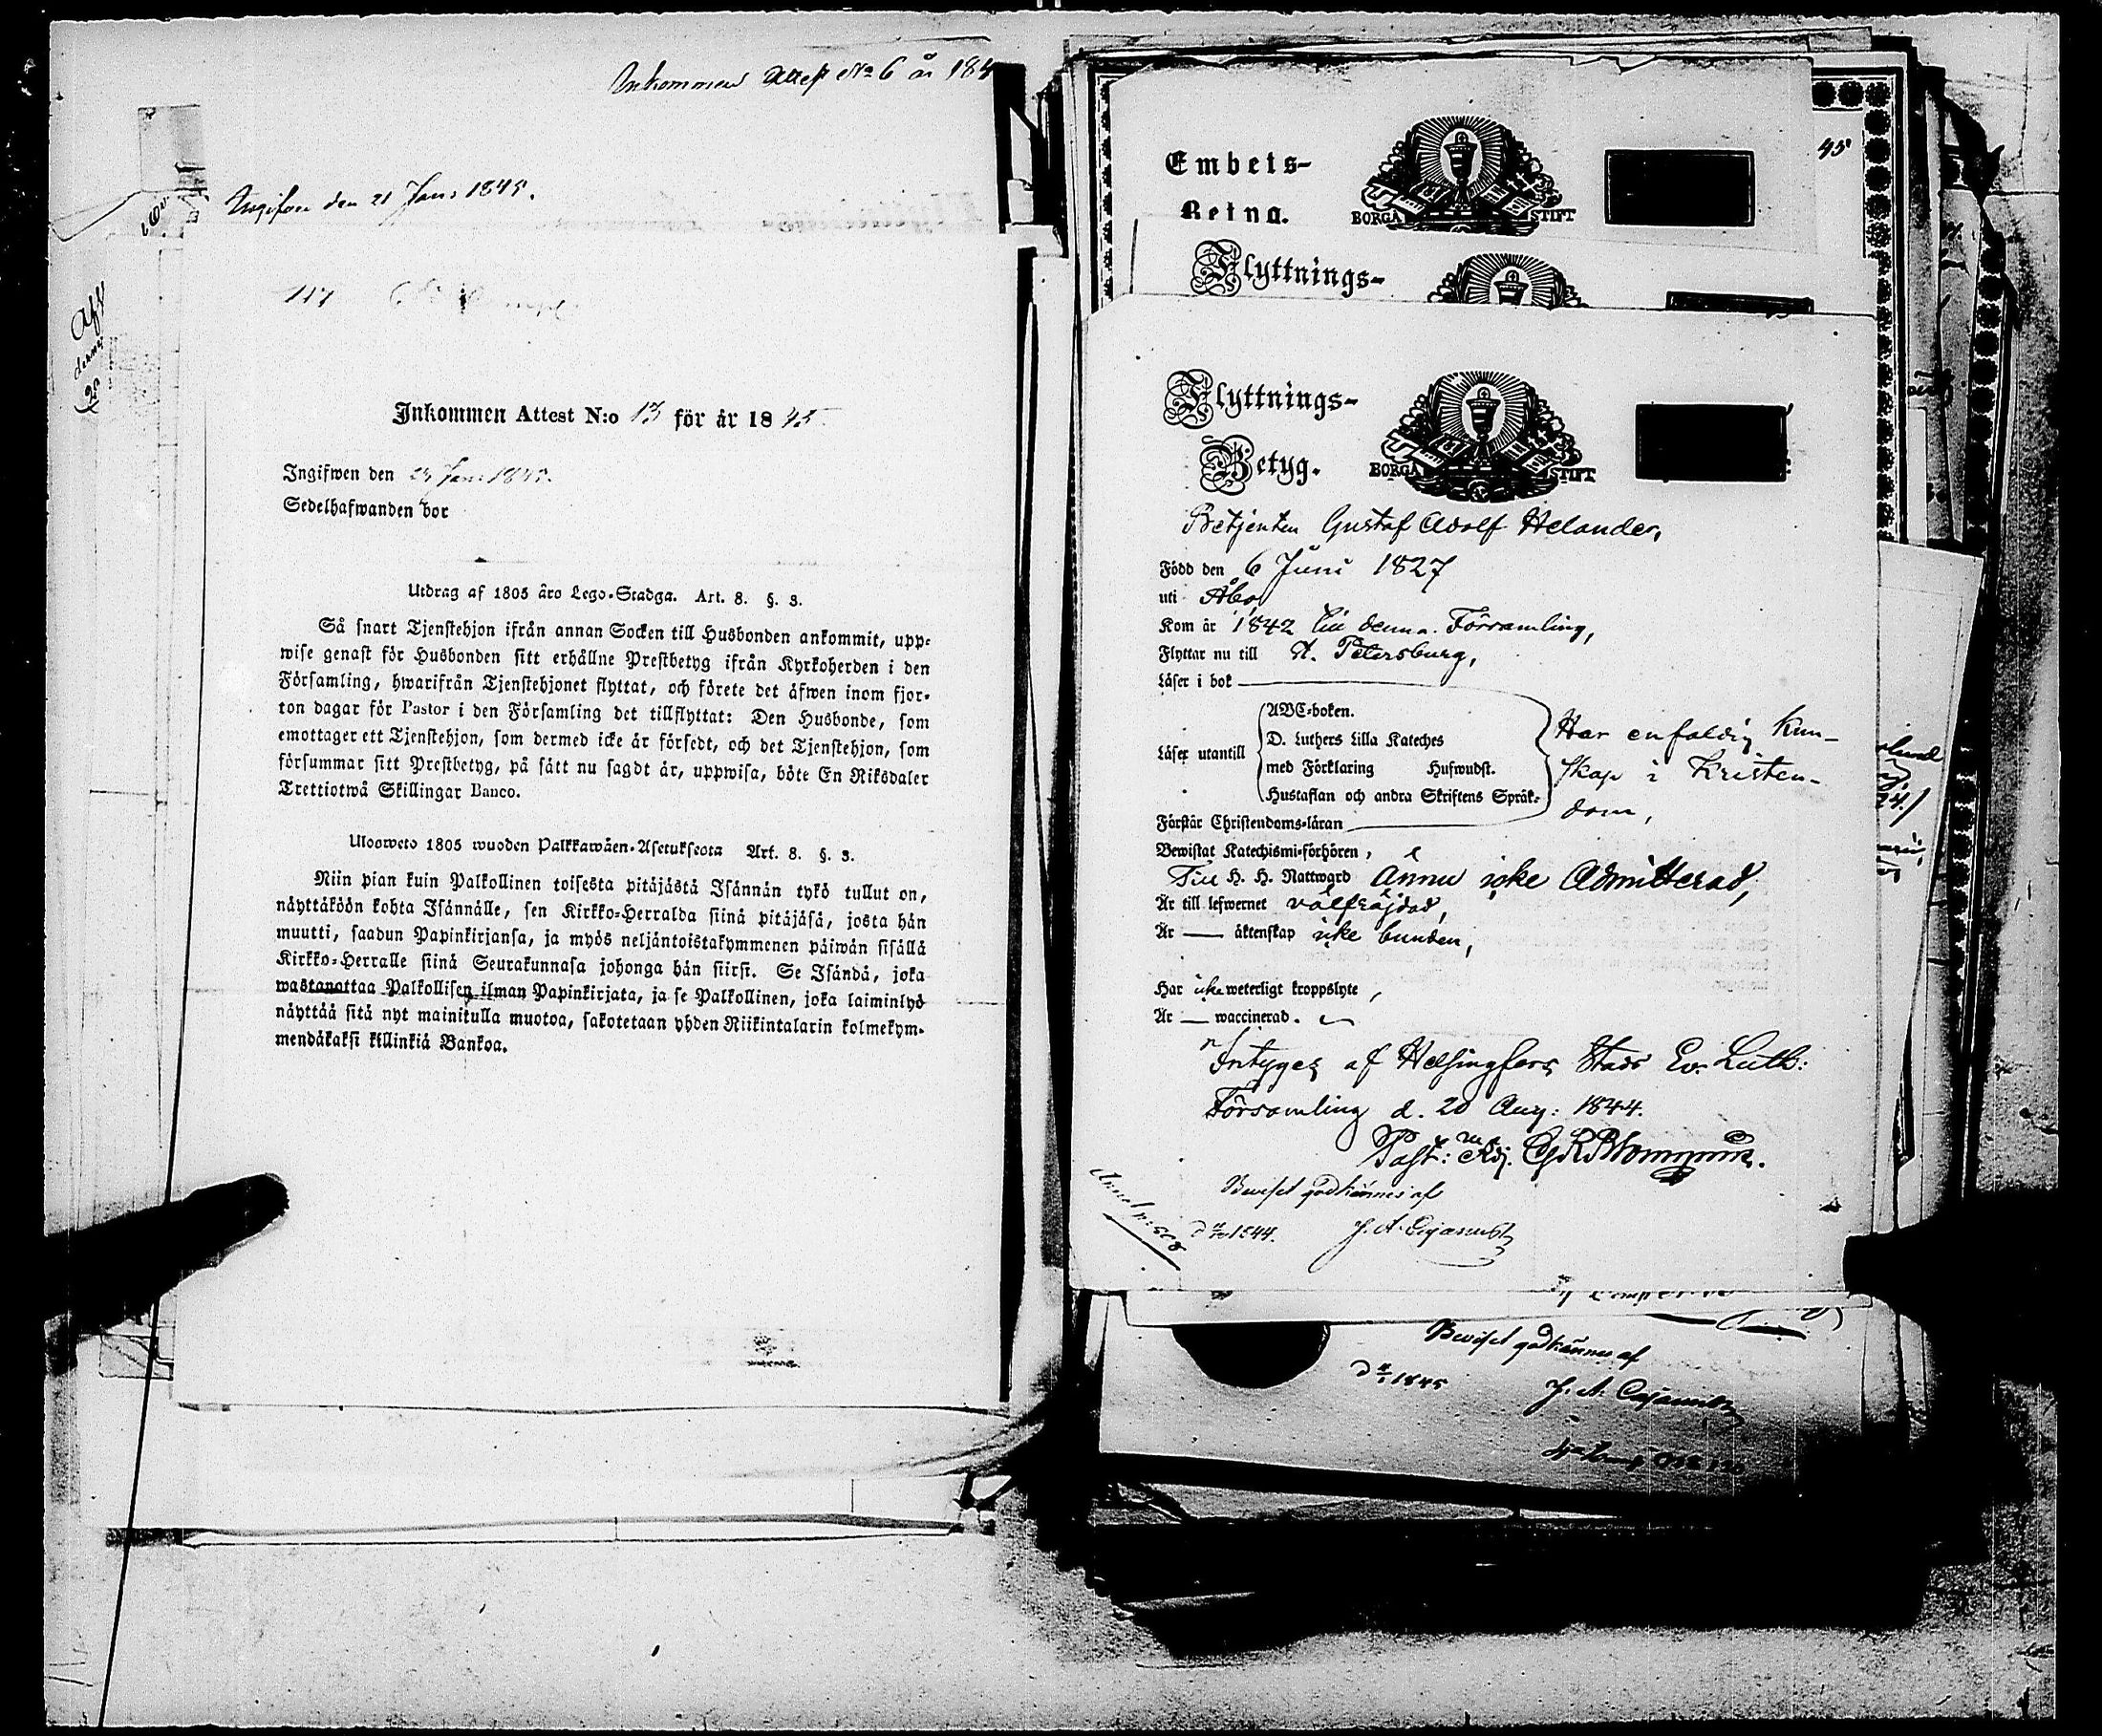 Inkommen Attest No 6 år 184
Ingifven den 21 Janu 1845.
117
Inkommen Attest N:o 13 för år 1845
Ingifwen den 24 Janu 1845.
Sedelhafwanden bor
Utdrag af 1805 års Lego-Stadga. Art. 8. §. 3.
Så snart Tjenstehjon ifrån annan Socken till Husbonden ankommit, upp-
wise genast för Husbonden sitt erhållne Prestbetyg ifrån Kyrkoherden i den
Församling, hwarifrån Tjenstehjonet flyttat, och förete det äfwen inom fjor-
ton dagar för Pastor i den Församling det tillflyttat: Den Husbonde, som
emottager ett Tjenstehjon, som dermed icke är försedt, och det Tjenstehjon, som
försummar sitt Prestbetyg, på sätt nu sagdt är, uppwisa, böte En Riksdaler
Trettiotwå Skillingar Banco.
Uloswcto 1805 wuoden Palkkawäen-Asetuksesta Art. 8. §. 3.
Niin pian kuin Palkollinen toisesta pitäjästä Isännän tykö tullut on,
näyttäköön kohta Isännälle, sen Kirkko-Herralda siinä pitäjäsä, josta hän
muutti, saadun Papinkirjansa, ja myös neljäntoistakymmenen päiwän sisällä
Kirkko-Herralle siinä Seurakunnasa johonga hän siirsi. Se Isändä, joka
wastanottaa Palkollisen ilman Papinkirjata, ja se Palkollinen, joka laiminlyö
näyttää sitä nyt mainitulla muotoa, sakotetaan yhden Riikintalarin kolmekym-
mendäkaksi killinkiä Bankoa.
Embets-
Betna.
BORGÅ STIFT
45
Flyttnings-
Flyttnings-
Betyg.
BORGÅ STIFT
Betjenten Gustaf Adolf Helander,
Född den 6 Juni 1827
uti Åbo
Kom år 1842 till denna Församling,
Flyttar nu till St. Petersburg,
Läser i bok
Läser utantill
ABC-boken.
D. Luthers Lilla Kateches
med Förklaring Hufwudst.
Hustaflan och andra Skriftens Språk
Har enfaldig kun-
skap i Kristen-
dom,
Förstår Christendoms-läran
Bewistat Katechismi-förhören,
Till H. H. Nattward ännu icke Admitterad,
Är till lefwernet välfräjdad,
Är — äktenskap icke bunden,
Har icke weterligt kroppslyte,
Är — waccinerad.
Intygez af Helsingfors Stads Ev. Luth:
Församling d. 20 Aug: 1844.
Past: Adj.
Beviset godkännes af
1844. J. A. Cajanus
Beviset godkännes af
1845
J. A. Cajanus